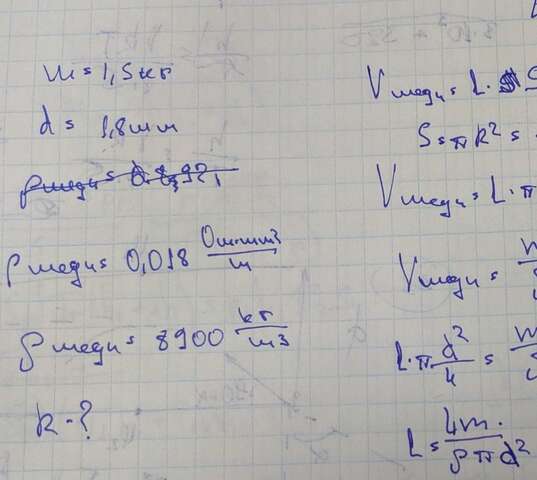 m = 1,5 кг
d = 1,8 mm
ρ меди = 0.8,92,
ρ меди = 0,018 Ом·mm3/m
ρ меди = 8900 кг/m3
R - ?
V меди = L · S
S = π R² =
V меди = L · π
V меди = m
L · π d²/4 = m
L = 4m·/ρ π d²